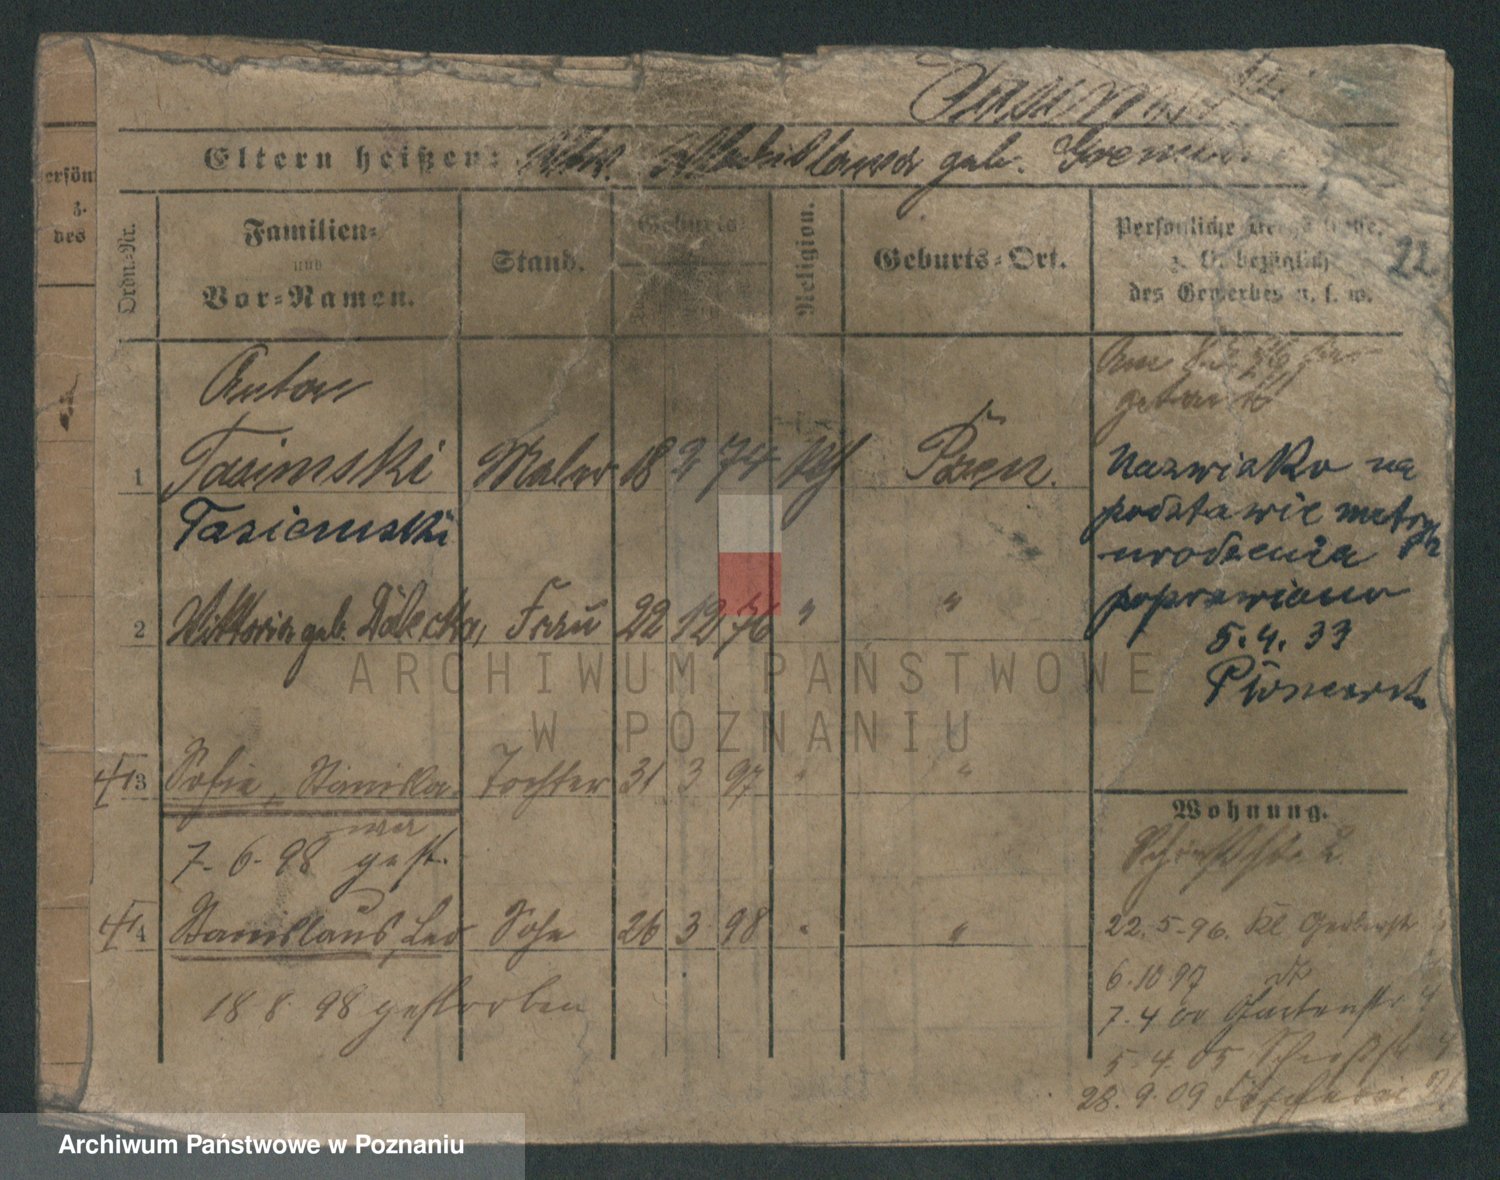 Eltern heißen: Wladislawa geb.
ersön
z.
des
Ordn.-Nr.
Familien-
und
Vor-Namen.
Stand.
Geburts
Religion.
Geburts-Ort.
Persönliche
z. B. bezüglich
des Gewerbes u. s. w.
22
Anton
1 Tasimski Maler 18 2 74 Posen.
Tasiemski
Nazwisko na
podstawie metryki
urodzenia
poprawiono
5.4.33
2 Wiktoria geb. Frau 22 12 76 " "
3 Sofie, Stanisla- Tochter 31 3 97 " "
wa
7.6.98 gest.
4 Stanislaus, Leo Sohn 26 3 98 " "
18 8 98 gestorben
Wohnung.
22.5.96. Kl. Gerberstr
6.10 97
7.4 00 Gartenstr
5.4.05
28.9.09
ARCHIWUM PAŃSTWOWE
W POZNANIU
Archiwum Państwowe w Poznaniu